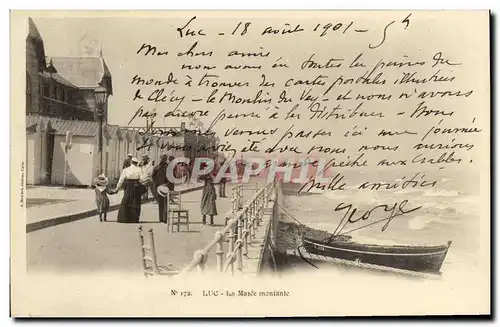 Luc - 18 août 1901 - 5h
Mes chers amis
nous avons eu toutes les peines du
monde à trouver des cartes postales illustrées
de Clécy - le Moulin du Vey - et nous n'avons
pas encore pensé à les distribuer - Nous
venons passer ici une journée
et avec nous
pêche aux crabes.
Mille amitiés
George
PHENIX
N° 172. LUC - La Marée montante